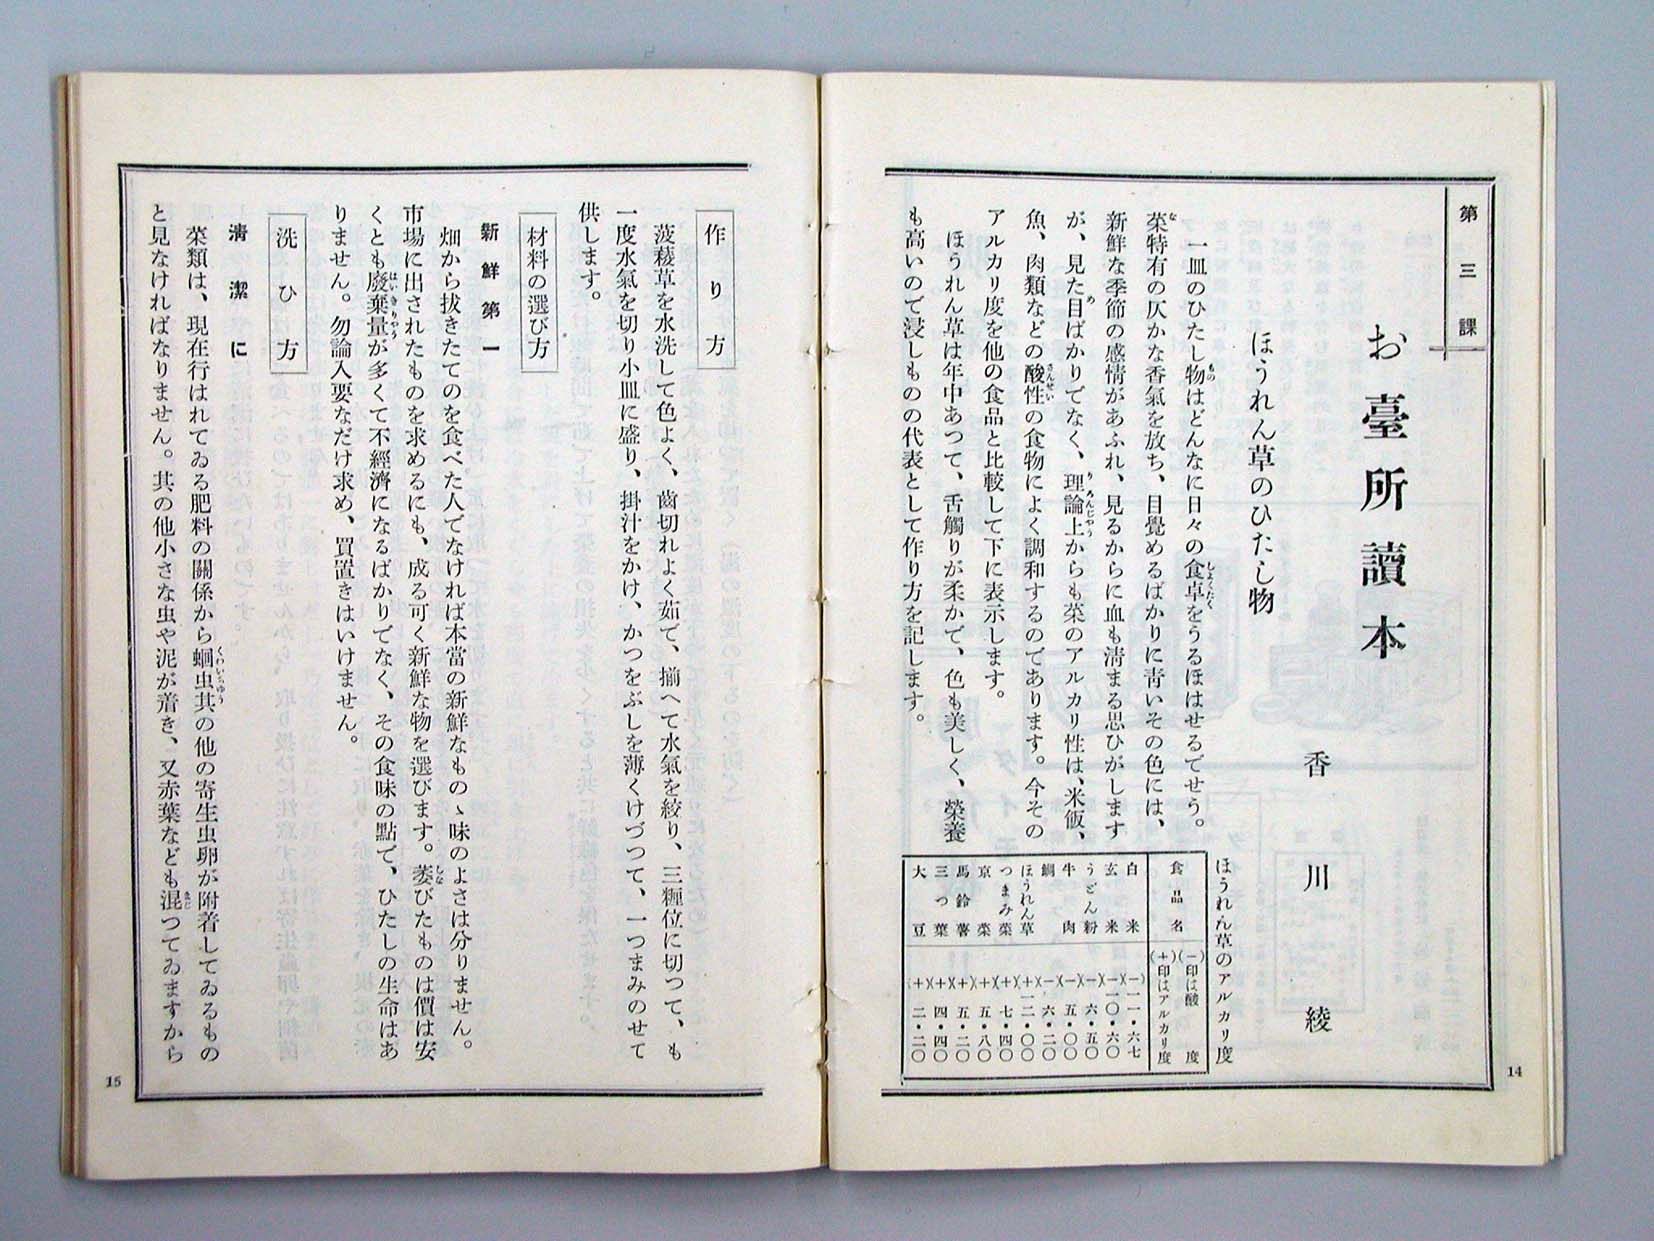 第三課
お臺所讀本
ほうれん草のひたし物
香川綾
一皿のひたし物はどんなに日々の食卓をうるほはせるでせう。
菜特有の仄かな香氣を放ち、目覺めるばかりに靑いその色には、
新鮮な季節の感情があふれ、見るからに血も淸まる思ひがします
が、見た目ばかりでなく、理論上からも菜のアルカリ性は、米飯、
魚、肉類などの酸性の食物によく調和するのであります。今その
アルカリ度を他の食品と比較して下に表示します。
ほうれん草は年中あつて、舌觸りが柔かで、色も美しく、榮養
も高いので浸しものの代表として作り方を記します。
ほうれん草のアルカリ度
食品名 (−)印は酸度 (+)印はアルカリ度
白米 (−)一一・六七
玄米 (−)一〇・六〇
うどん粉 (−)六・五〇
牛肉 (−)五・〇〇
鯛 (−)六・二〇
ほうれん草 (+)一二・〇〇
つまみ菜 (+)七・四〇
京菜 (+)五・八〇
馬鈴薯 (+)五・二〇
三つ葉 (+)四・四〇
大豆 (+)二・二〇
14
作り方
菠薐草を水洗して色よく、齒切れよく茹で、揃へて水氣を絞り、三糎位に切つて、も
一度水氣を切り小皿に盛り、掛汁をかけ、かつをぶしを薄くけづつて、一つまみのせて
供します。
材料の選び方
新鮮第一
畑から拔きたてのを食べた人でなければ本當の新鮮なものゝ味のよさは分りません。
市場に出されたものを求めるにも、成る可く新鮮な物を選びます。萎びたものは價は安
くとも廢棄量が多くて不經濟になるばかりでなく、その食味の點で、ひたしの生命はあ
りません。勿論入要なだけ求め、買置きはいけません。
洗ひ方
淸潔に
菜類は、現在行はれてゐる肥料の關係から蛔虫其の他の寄生虫卵が附着してゐるもの
と見なければなりません。其の他小さな虫や泥が着き、又赤葉なども混つてゐますから
15